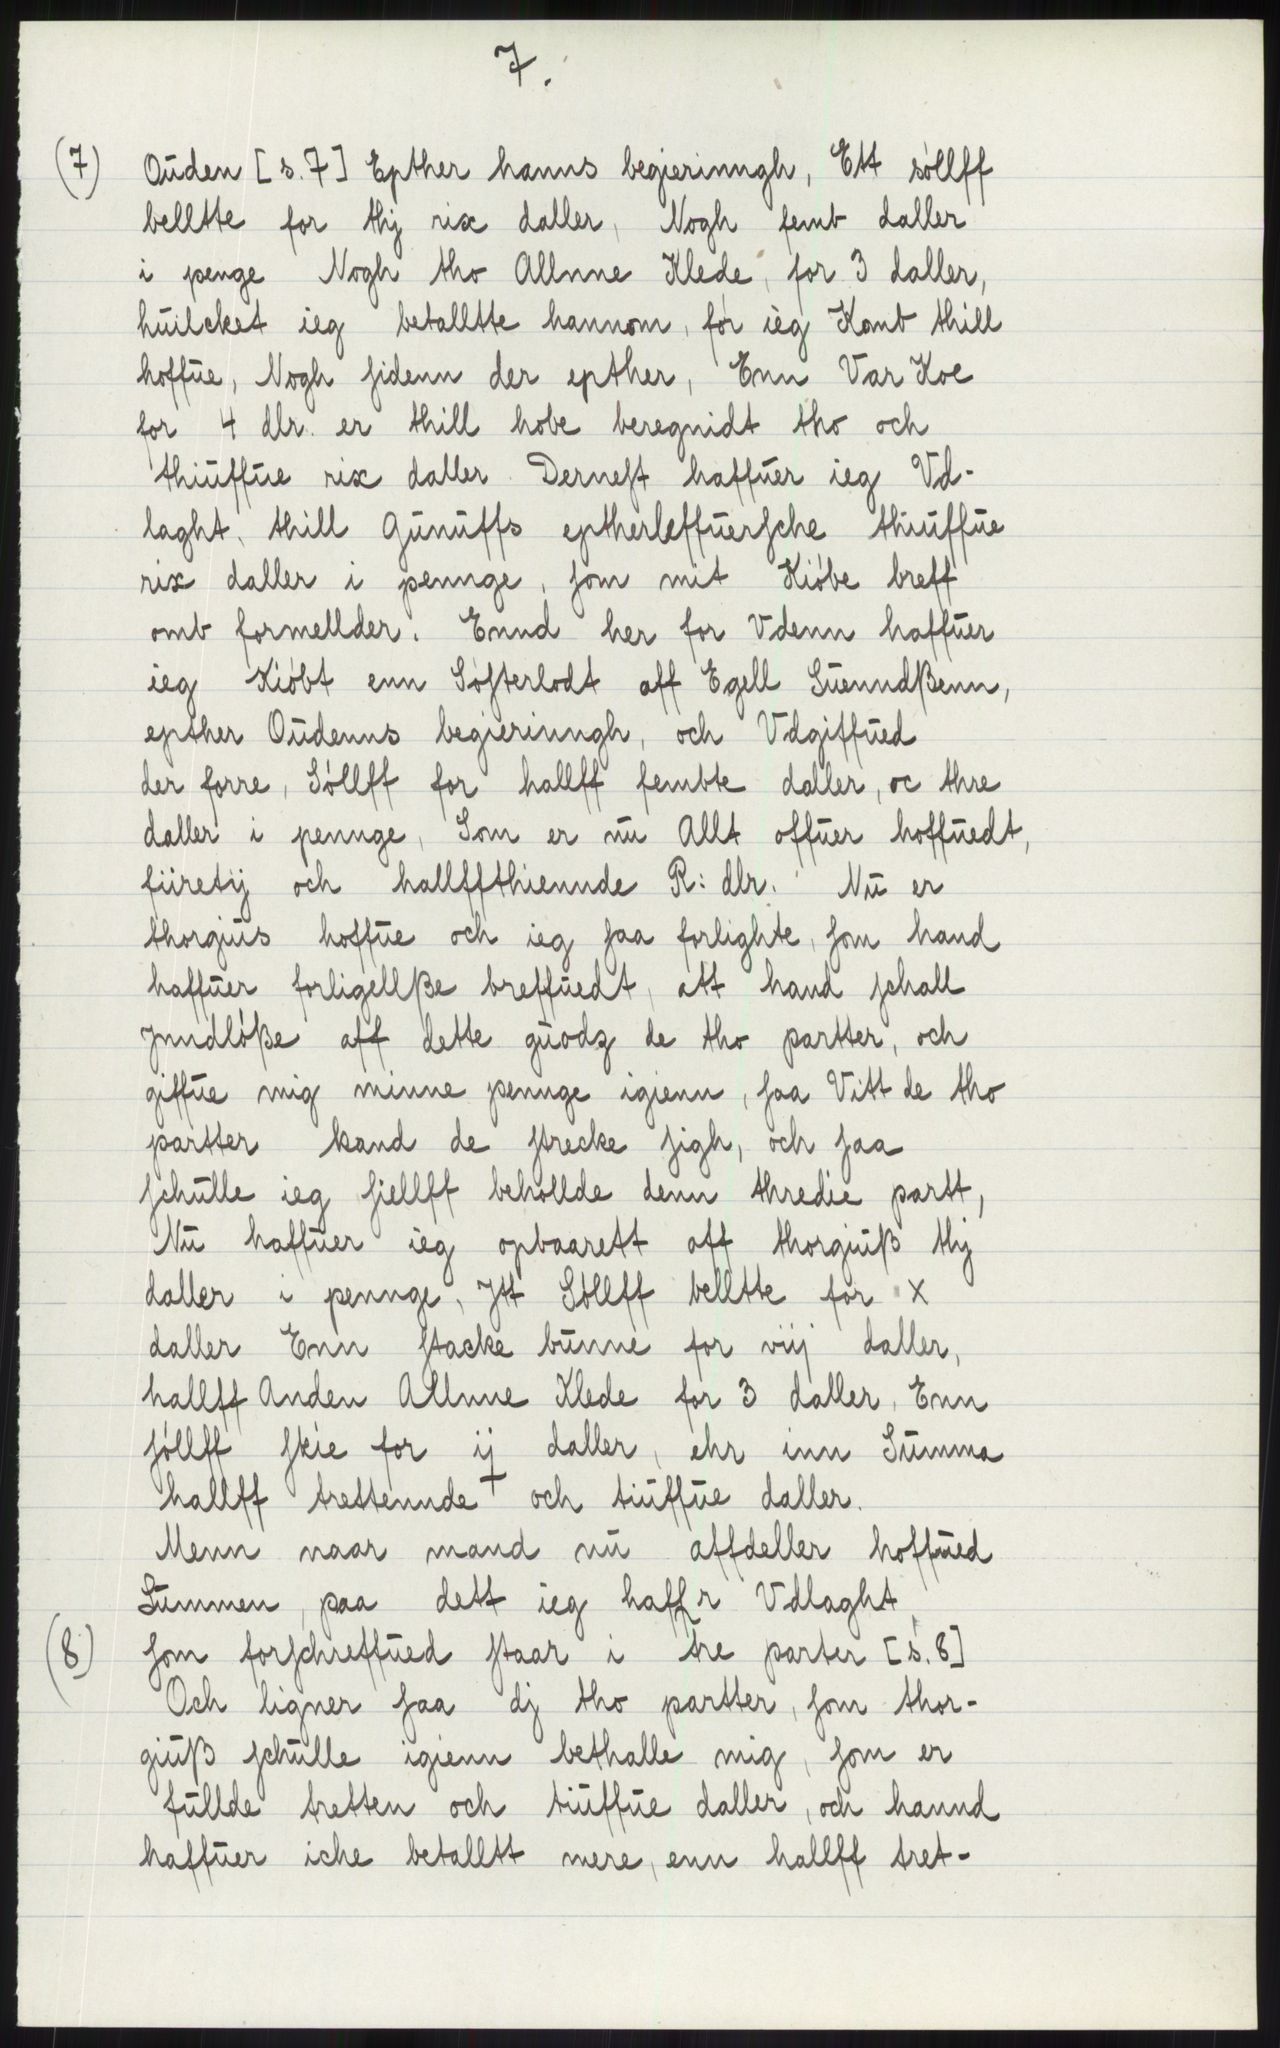 7.
(7) Ouden [s.7] Epther hanns begierinngh, Ett söllff
belltte for thj rix daller, Nogh femb daller
i penge Nogh tho Allnne Klede, for 3 daller,
huilcket ieg betalltte hannom, för ieg Komb thill
hoffue, Nogh sidenn der epther, Enn Var Koe
for 4 dlr. er thill hobe beregnidt tho och
thiuffue rix daller. Dernest haffuer ieg Vd-
laght, thill Gunuffs eptherleffuersche thiuffue
rix daller i pennge, som mit Kiöbe breff
omb formellder. Ennd her for Vdenn haffuer
ieg Kiöbt enn Sösterlodt aff Egell Suenndßenn,
epther Oudenns begierinngh, och Vdgiffued
der forre, Söllff for hallff fembte daller, oc thre
daller i pennge, Som er nu Allt offuer hoffuedt,
fiiretij och hallffthiennde R: dlr. Nu er
thorgius hoffue och ieg saa forlighte, som hand
haffuer forligellße breffuedt, att hand schall
Jnndlöße aff dette guodz de tho partter, och
giffue mig minne pennge igienn, saa Vitt de tho
partter kand de strecke sigh, och saa
schulle ieg siellff behollde denn thredie partt,
Nu haffuer ieg opbaarett aff thorgiuß thj
daller i pennge, Jtt Söllff belltte for x
daller Enn stacke bunne for viij daller,
hallff Anden Allnne Klede for 3 daller, Enn
söllff skie for ij daller, ehr inn Summa
hallff trettennde + och tiuffue daller.
Menn naar mand nu affdeller hoffued
Summen, paa dett ieg haffr Vdlaght,
(8) som forschreffued staar i tre parter [s.8]
Och ligner saa dj tho partter, som thor-
giuß schulle igienn bethalle mig, som er
fullde tretten och tiuffue daller, och hannd
haffuer iche betalltt mere, enn hallff tret-